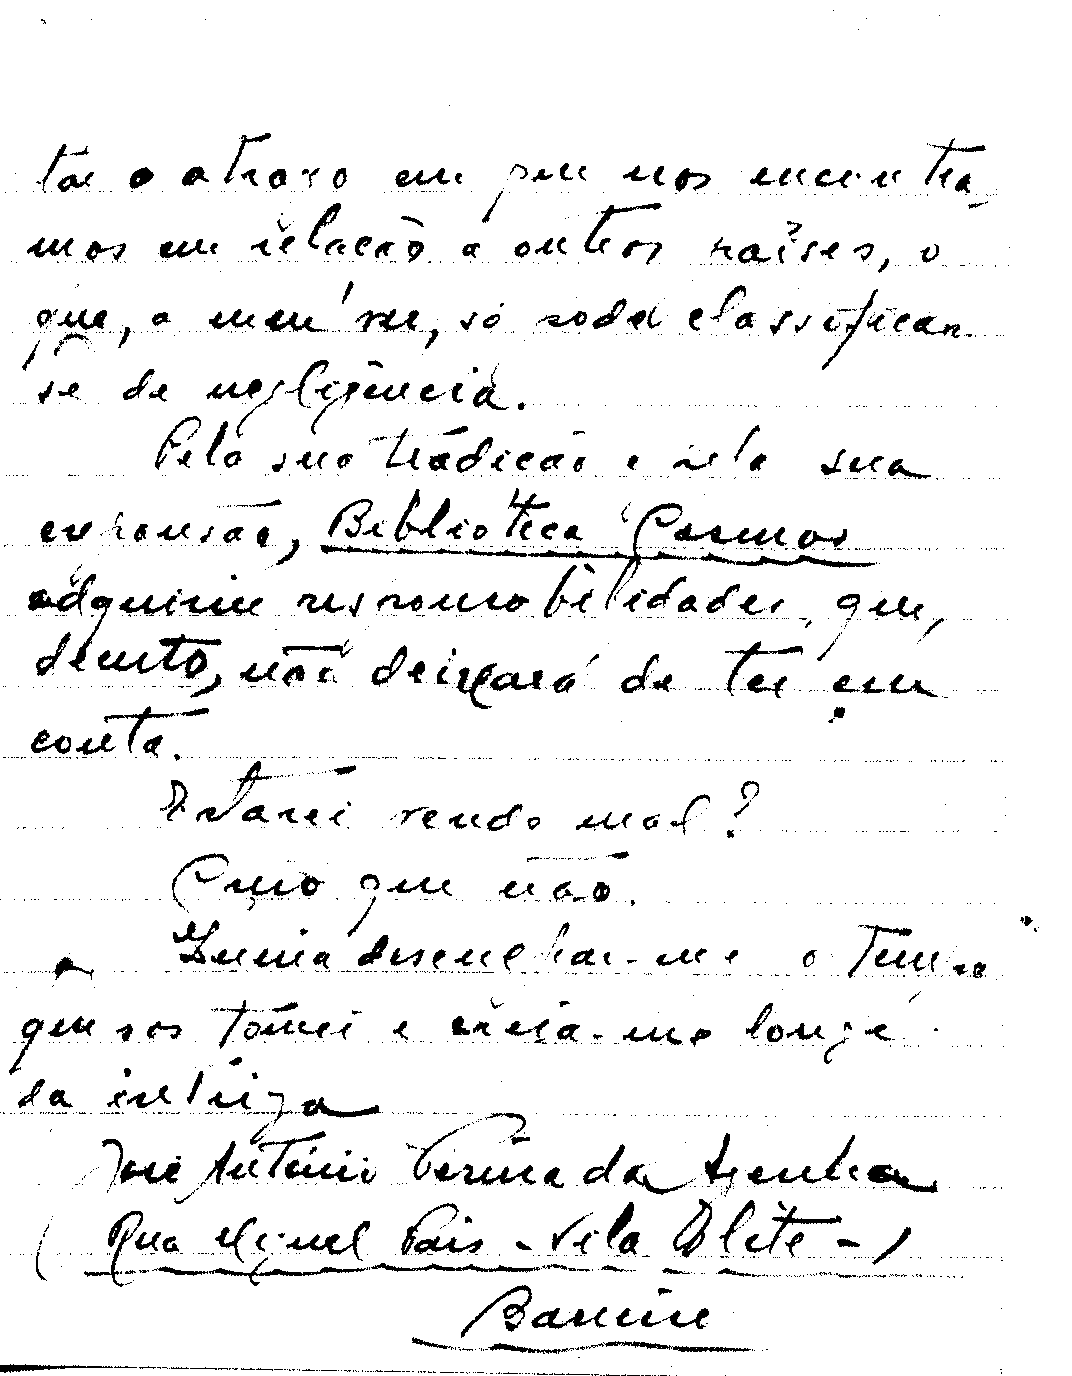 tar o atraso em que nos encontra-
mos em relação a outros países, o
que, a meu ver, só pode classificar-
se de negligência.
Pela sua tradição e pela sua
expansão, Biblioteca Cosmos
adquiriu responsabilidades, que,
decerto, não deixará de ter em
conta.
Estarei vendo mal?
Creio que não.
Queira desculpar-me o tempo
que vos tomei e creia-me longe
da intriga
José António
(Rua Miguel Pais - Vila Elite -)
Barreiro